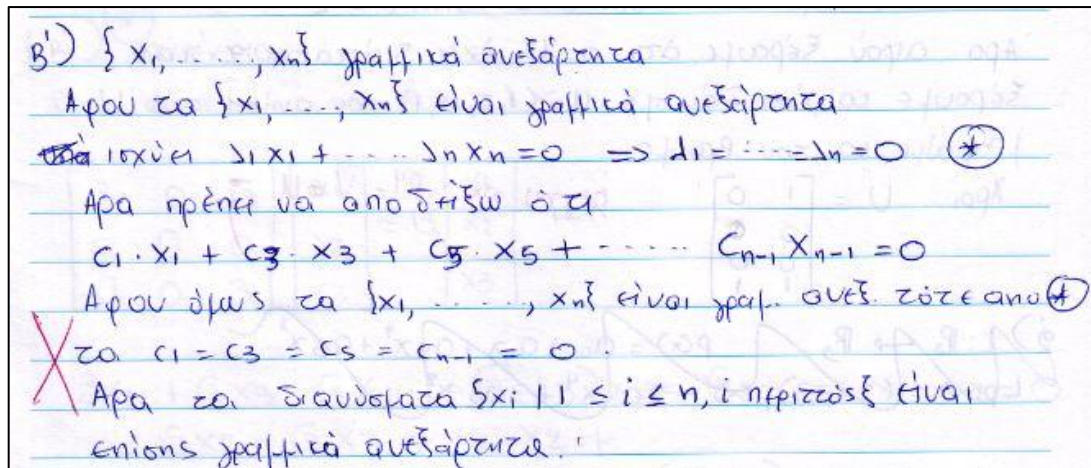 Β') { x1, ....., xn} γραμμικά ανεξάρτητα
Αφου τα {x1, ....., xn} είναι γραμμικά ανεξάρτητα
ισχύει λ1 x1 + ..... λn xn = 0 => λ1 = ..... = λn = 0 (*)
Αρα πρέπει να αποδείξω ότι
c1 · x1 + c3 · x3 + c5 · x5 + ...... cn-1 xn-1 = 0
Αφου όμως τα {x1, ......, xn} είναι γραμ. ανεξ. τότε απο (*)
τα c1 = c3 = c5 = cn-1 = 0 .
Αρα τα διανύσματα {xi | 1 ≤ i ≤ n, i περιττός} είναι
επίσης γραμμικά ανεξάρτητα.